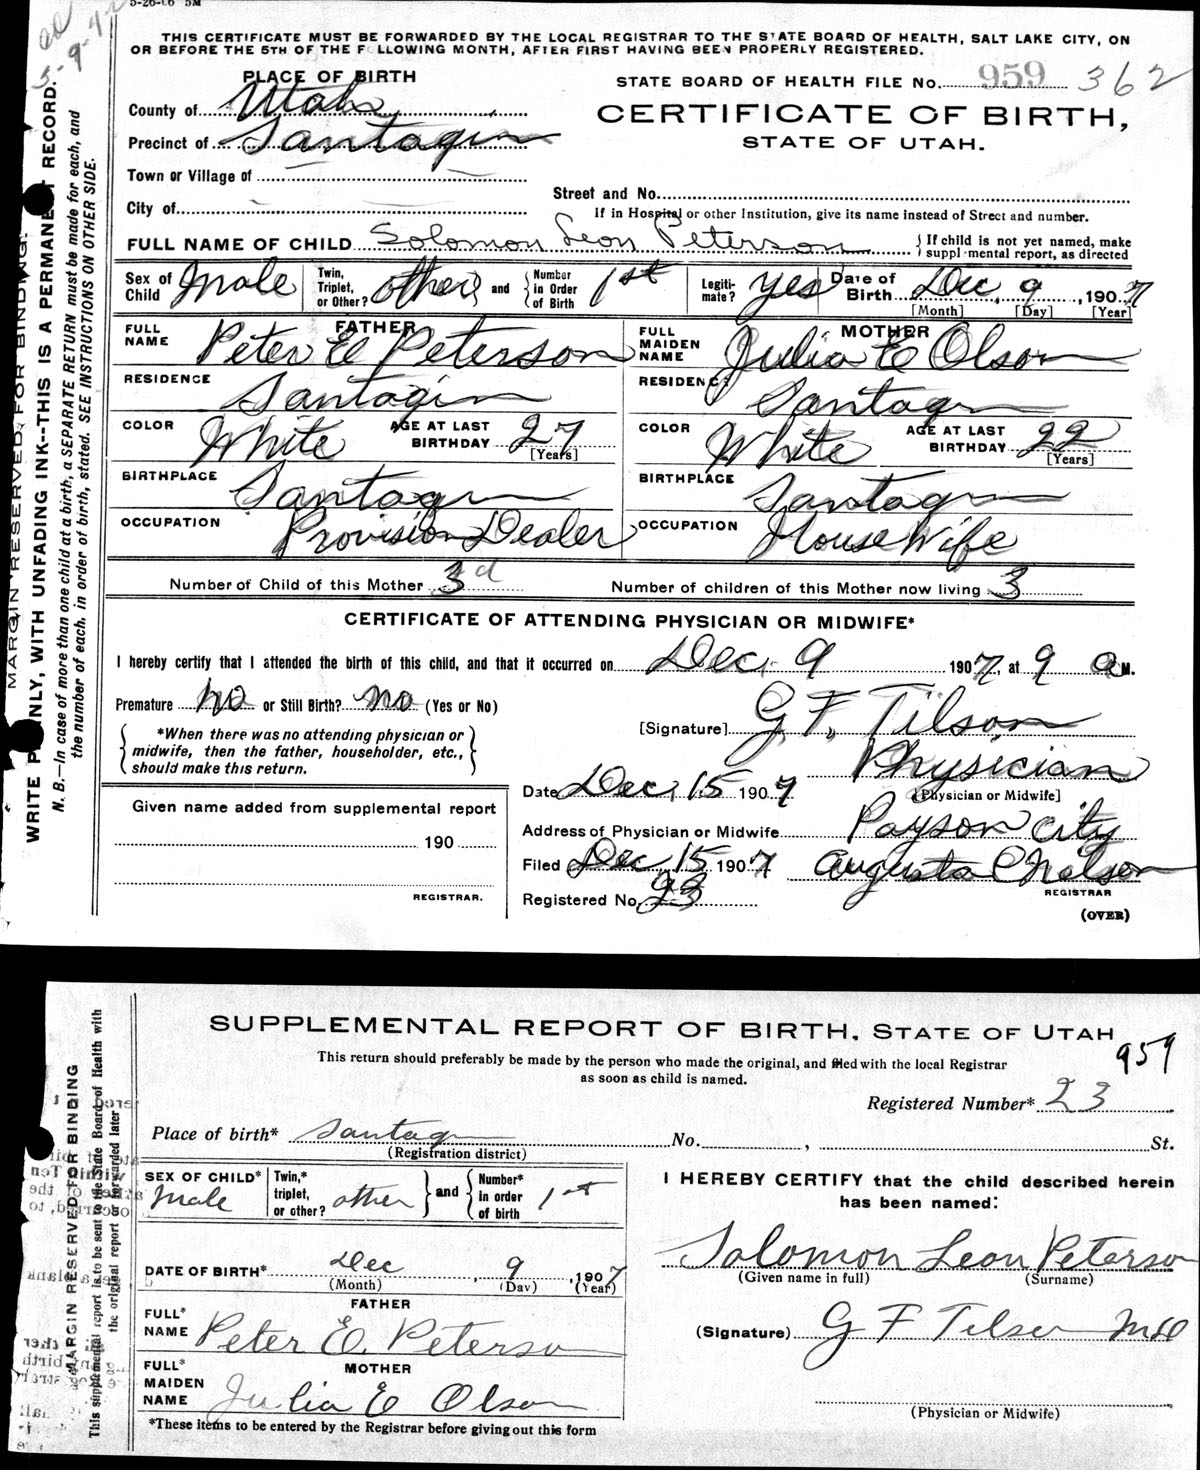 5-26-06 5M
5-9-42
THIS CERTIFICATE MUST BE FORWARDED BY THE LOCAL REGISTRAR TO THE STATE BOARD OF HEALTH, SALT LAKE CITY, ON
OR BEFORE THE 5TH OF THE F LLOWING MONTH, AFTER FIRST HAVING BEEN PROPERLY REGISTERED.
PLACE OF BIRTH
STATE BOARD OF HEALTH FILE No. 959 362
County of Utah
CERTIFICATE OF BIRTH,
Precinct of Santaquin
STATE OF UTAH.
Town or Village of
Street and No.
City of
If in Hospital or other Institution, give its name instead of Street and number.
FULL NAME OF CHILD Solomon Leon Peterson { If child is not yet named, make
suppl mental report, as directed
Sex of Child Male Twin, Triplet, or Other? other and { Number in Order of Birth 1st Legiti-mate? yes Date of Birth Dec, 9, 1907
[Month] [Day] [Year]
FATHER MOTHER
FULL NAME Peter E Peterson FULL MAIDEN NAME Julia E Olson
RESIDENCE Santaquin RESIDENCE Santaquin
COLOR White AGE AT LAST BIRTHDAY 27 [Years] COLOR White AGE AT LAST BIRTHDAY 22 [Years]
BIRTHPLACE Santaquin BIRTHPLACE Santaquin
OCCUPATION Provision Dealer OCCUPATION House Wife
Number of Child of this Mother 3d Number of children of this Mother now living 3
CERTIFICATE OF ATTENDING PHYSICIAN OR MIDWIFE*
I hereby certify that I attended the birth of this child, and that it occurred on Dec, 9 1907, at 9 a M.
Premature no or Still Birth? no (Yes or No)
[Signature] G. F. Tilson
*When there was no attending physician or
midwife, then the father, householder, etc.,
should make this return.
Physician
[Physician or Midwife]
Date Dec, 15 1907
Given name added from supplemental report
190
REGISTRAR.
Address of Physician or Midwife Payson City
Filed Dec, 15 1907 Augusta C Nelson
REGISTRAR
Registered No. 23
(OVER)
MARGIN RESERVED FOR BINDING.
WRITE P INLY, WITH UNFADING INK--THIS IS A PERMANE T RECORD.
N. B.—In case of more than one child at a birth, a SEPARATE RETURN must be made for each, and
the number of each, in order of birth, stated. SEE INSTRUCTIONS ON OTHER SIDE.
SUPPLEMENTAL REPORT OF BIRTH, STATE OF UTAH
959
This return should preferably be made by the person who made the original, and filed with the local Registrar
as soon as child is named.
Registered Number* 23
Place of birth* Santaquin No. , St.
(Registration district)
SEX OF CHILD* Male Twin,* triplet, or other? other } and { Number* in order of birth 1st
DATE OF BIRTH* Dec, 9, 1907
(Month) (Day) (Year)
FATHER
FULL* NAME Peter E. Peterson
MOTHER
FULL* MAIDEN NAME Julia E Olson
*These items to be entered by the Registrar before giving out this form
I HEREBY CERTIFY that the child described herein
has been named:
Solomon Leon Peterso
(Given name in full) (Surname)
(Signature) G F Tilson MD
(Physician or Midwife)
MARGIN RESERVED FOR BINDING
This supplemental report is to be sent to the State Board of Health with
the original report if forwarded later